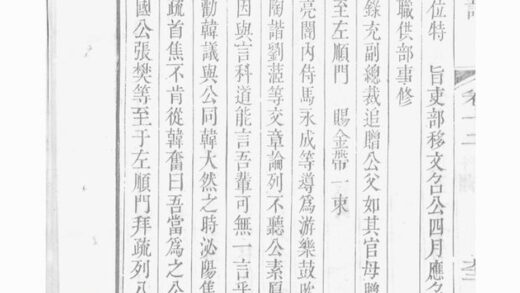 卷十二
位特 旨吏部移文召公四月應
職供部事修
錄充副總裁追贈公父如其官母贈
至左順門 賜金帶一束
亮闇內侍馬永成等導為游樂鼓
陶諧劉蒞等交章論列不聽公素
因與言科道能言吾輩可無一言乎
勸韓議與公同韓大然之時泌陽焦
疏首焦不肯從韓奮曰吾當為之公
國公張樊等至于左順門拜疏列八